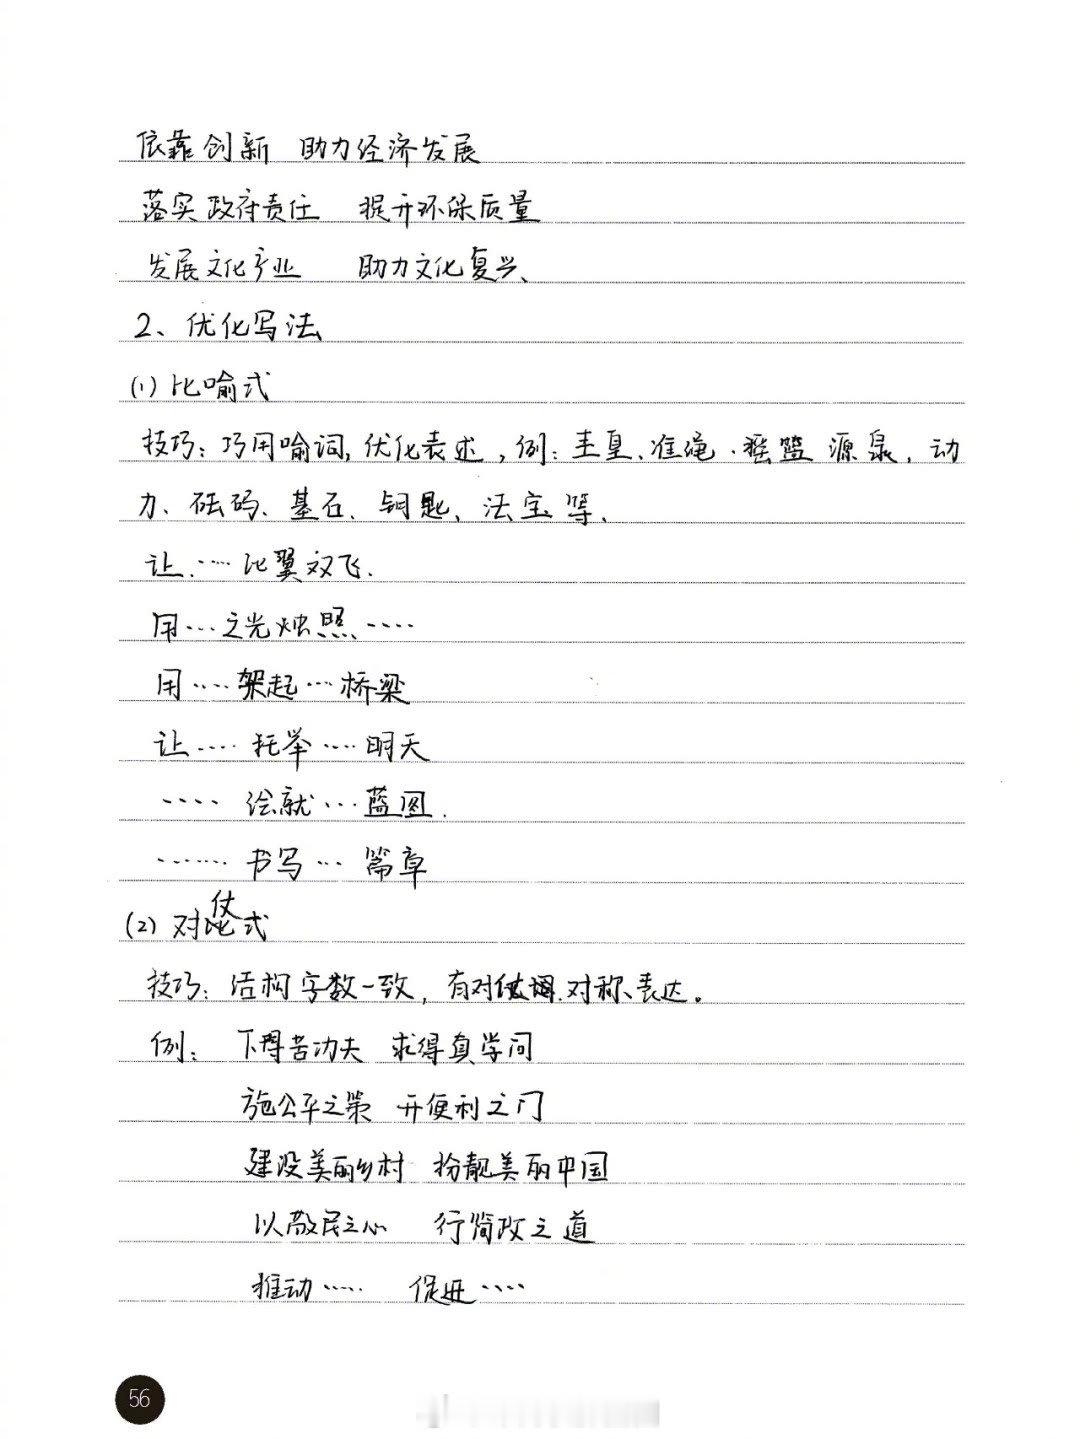 依靠创新 助力经济发展
落实政府责任 提升环保质量
发展文化产业 助力文化复兴、
2、优化写法
(1) 比喻式
技巧：巧用喻词，优化表述，例：圭皇、准绳·摇篮 源泉，动
力、砝码、基石、钥匙、法宝等、
让……比翼双飞.
用…之光烛照……
用……架起…桥梁
让……托举……明天
……绘就…蓝图.
……书写…篇章
(2) 对仗式
技巧：结构字数一致，有对仗 对称、表达。
例： 下得苦功夫 求得真学问
施公平之策 开便利之门
建设美丽乡村 扮靓美丽中国
以敬民之心 行简政之道
推动…… 促进……
56